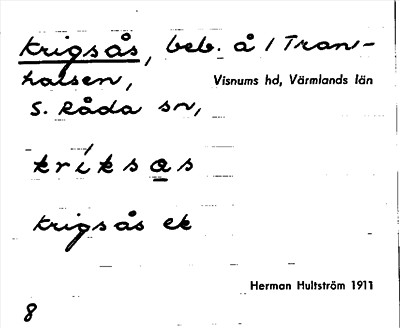 Krigsås, beb. å / Tran-
halsen, Visnums hd, Värmlands län
S. Råda sn,
kríksas
Krigsås ek
Herman Hultström 1911
8